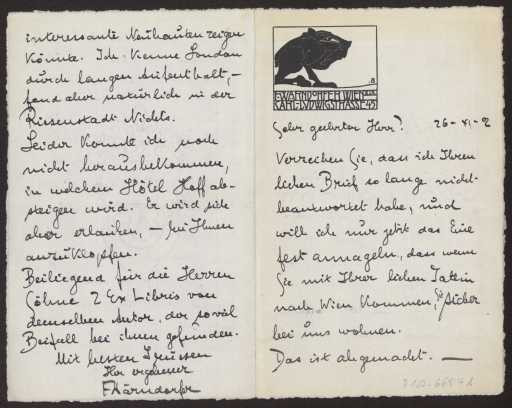 F. WÄRNDORFER WIEN XVIII
KARL-LUDWIGSTRASSE 45
Sehr geehrter Herr! 26-XI-2
Verzeihen Sie, dass ich Ihren
lieben Brief so lange nicht
beantwortet habe, und
will ich nur jetzt das Eine
fest annageln, dass wenn
Sie mit Ihrer lieben Tatein
nach Wien kommen, Sie sicher
bei uns wohnen.
Das ist abgemacht. —
interessante Neubauten zeigen
könnte. Ich kenne London
durch langen Aufenthalt, —
fand aber natürlich in der
Riesenstadt Nichts.
Leider konnte ich noch
nicht herausbekommen,
in welchem Hôtel Hoff ab-
steigen wird. Er wird sich
aber erlauben, — bei Ihnen
anzuklopfen.
Beiliegend für die Herren
Söhne 2 Ex Libris von
demselben Autor, der so viel
Beifall bei ihnen gefunden.
Mit besten Grüssen
Ihr ergebener
FWärndorfer